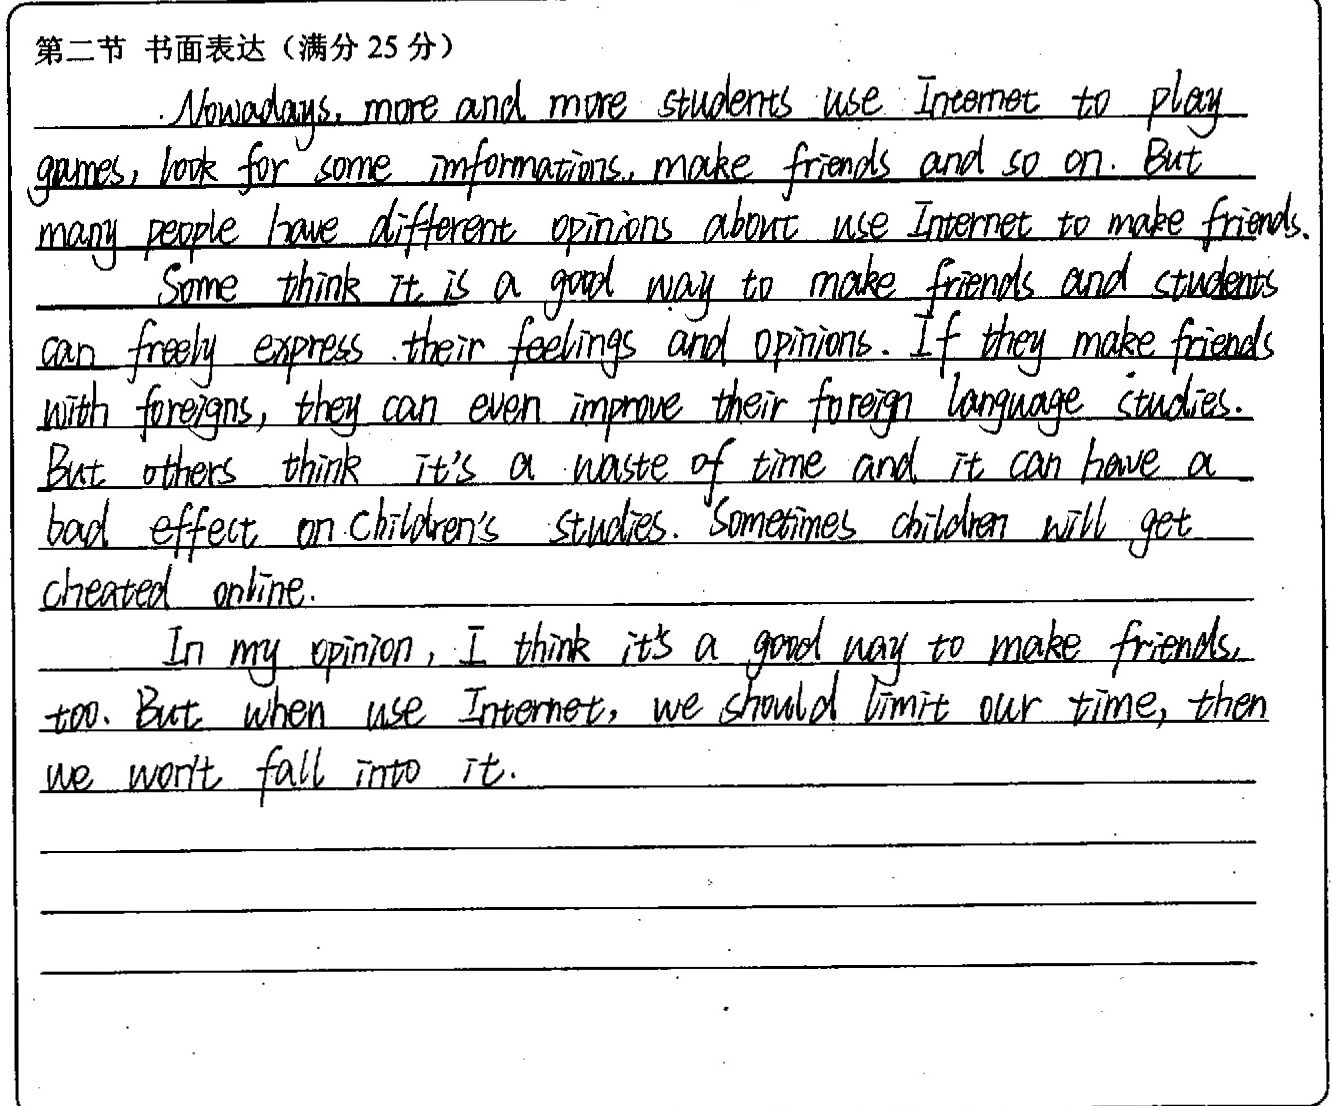 第二节 书面表达（满分 25 分）
Nowadays, more and more students use Internet to play
games, look for some informations, make friends and so on. But
many people have different opinions about use Internet to make friends.
Some think it is a good way to make friends and students
can freely express their feelings and opinions. If they make friends
with foreigns, they can even improve their foreign language studies.
But others think it's a waste of time and it can have a
bad effect on children's studies. Sometimes children will get
cheated online.
In my opinion, I think it's a good way to make friends,
too. But when use Internet, we should limit our time, then
we won't fall into it.